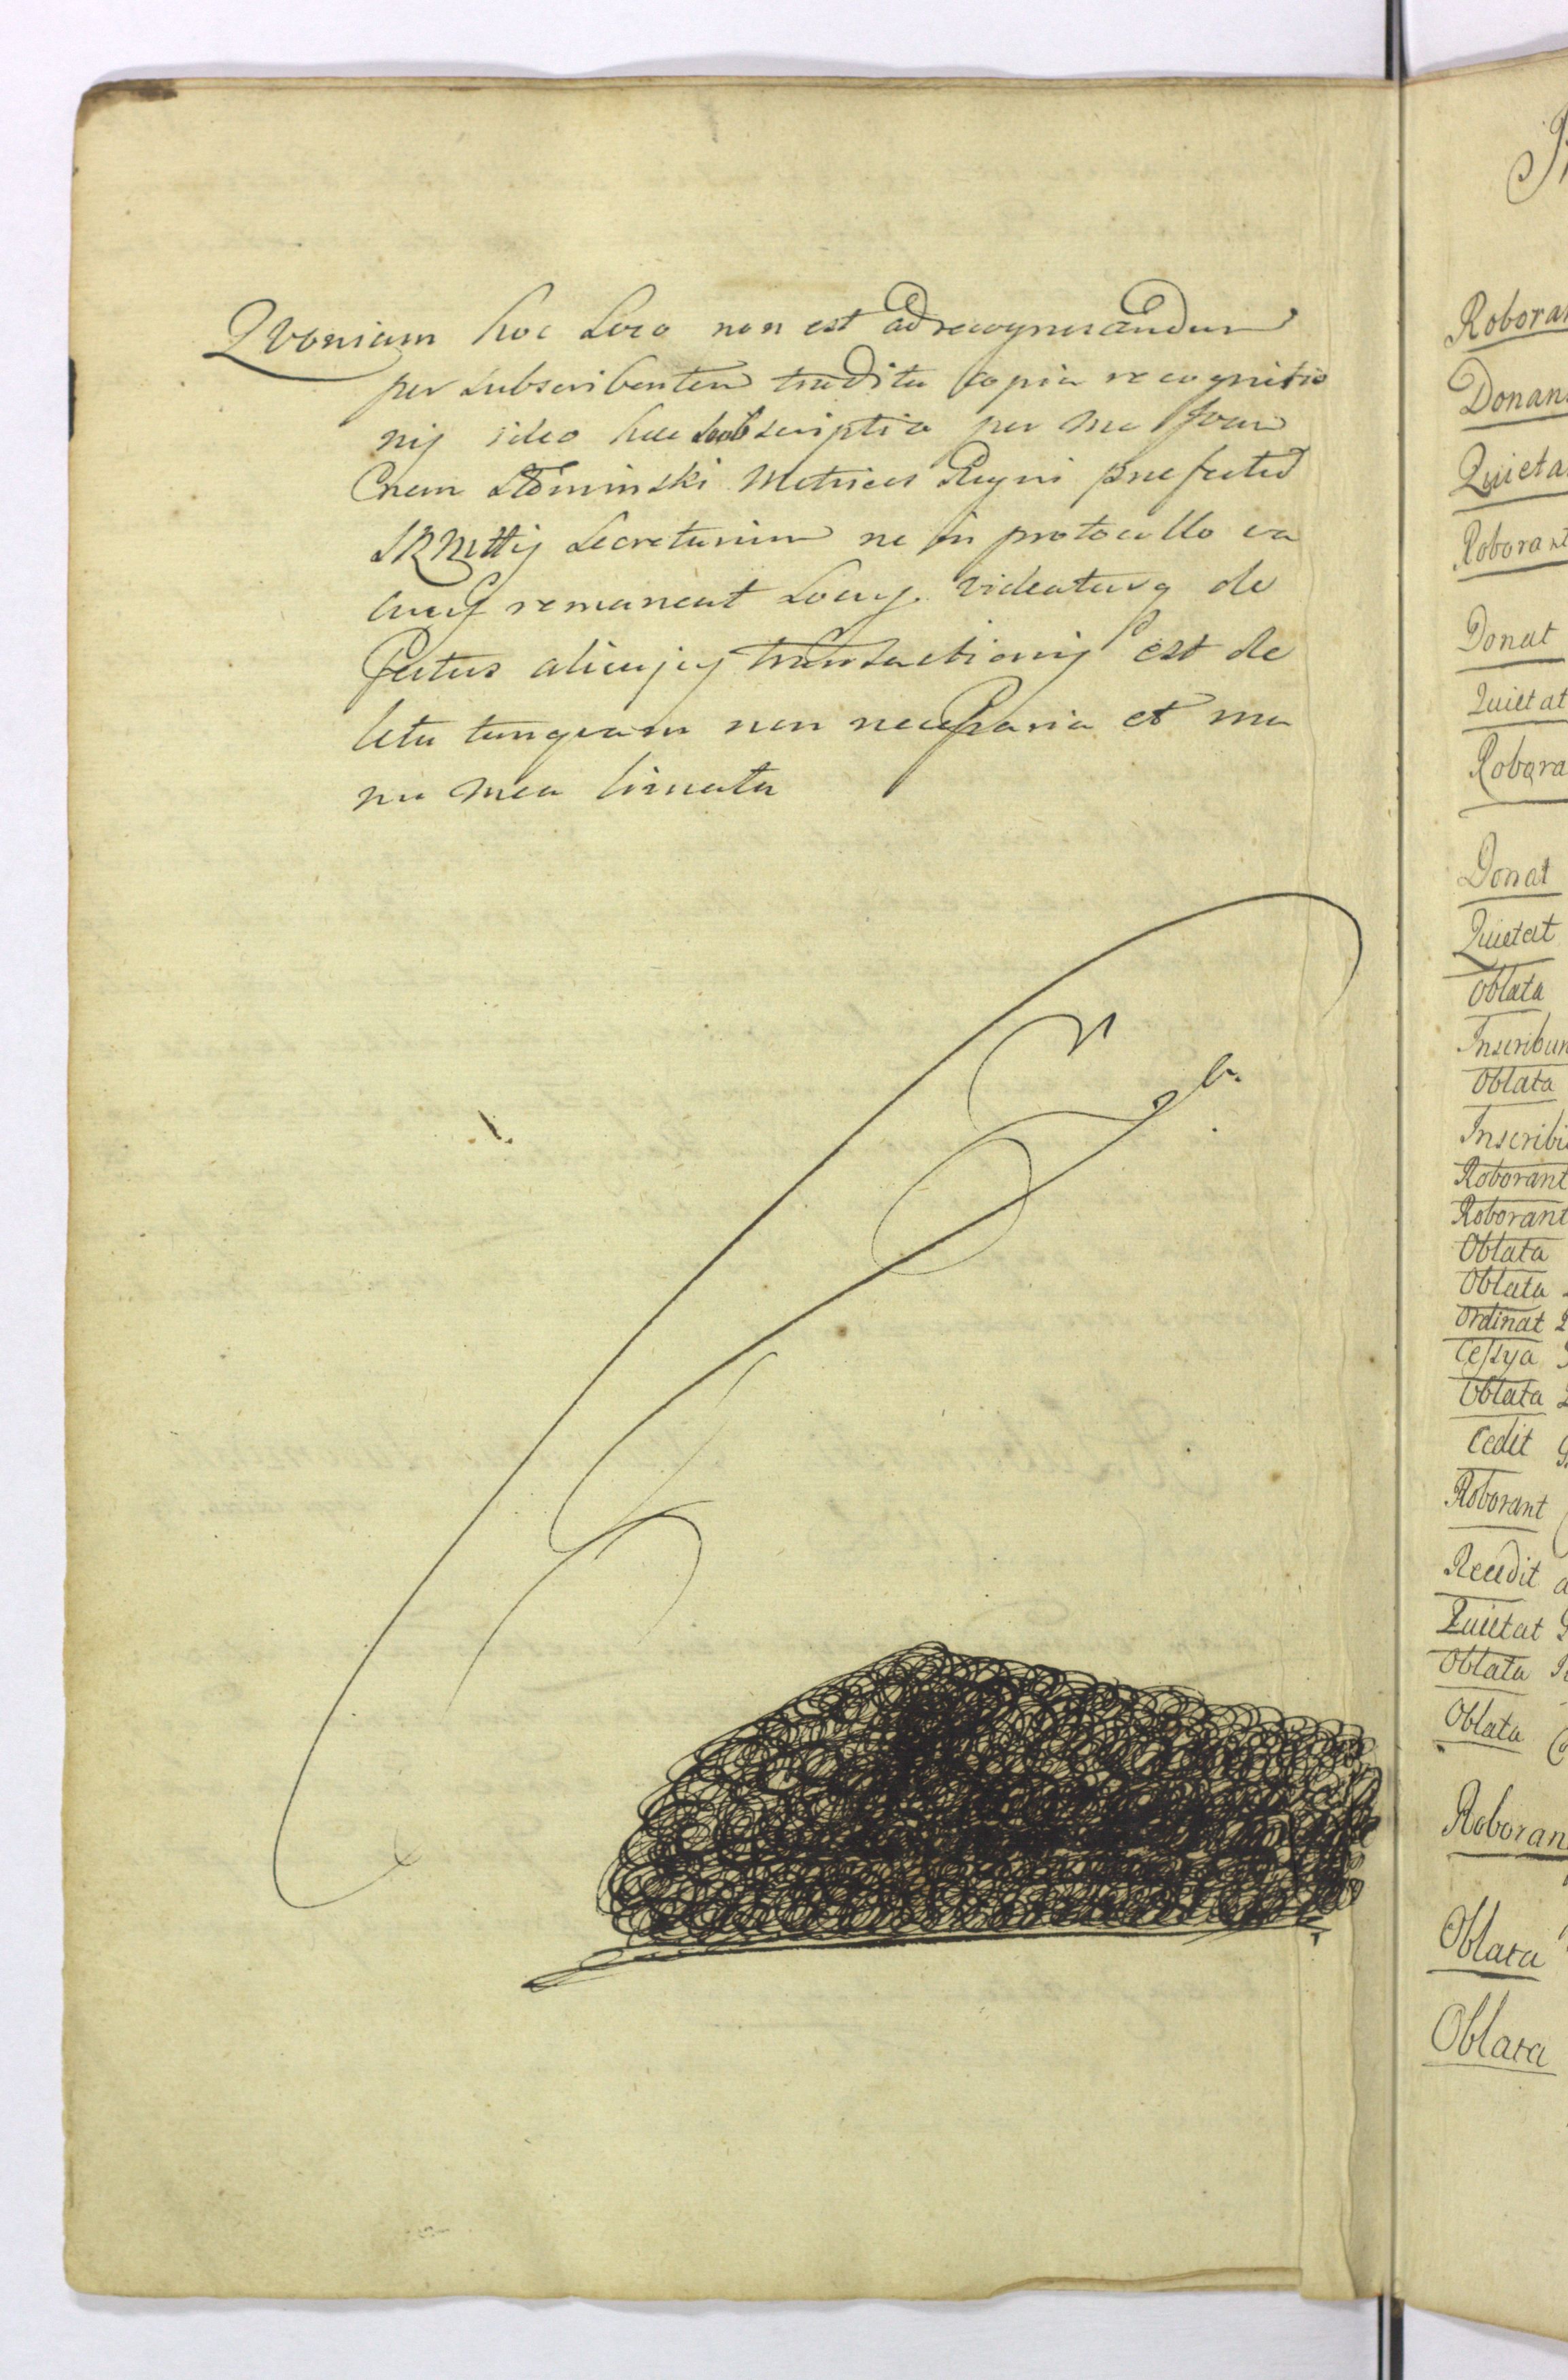 Quoniam hoc Loco non est ad recognoscendum
per subscribentem tradita copia recognitio
nis ideo haec subscriptio per me Joan
nem Słominski Metrices Regni praefectum
SRMttis Secretarium ne in protocollo va
cuus remaneat Locus videaturq de
fectus alicujus transactionis est de
leta tanquam non necessaria et ma
nu mea
Roboran
Donan
Quieta
Roborant
Donat
Quietat
Robora
Donat
Quietat
Oblata
Inscribun
Oblata
Inscribi
Roborant
Roborant
Oblata
Oblata
Ordinat
Cessya
Oblata
Cedit
Roborant
Quietat
Oblata
Oblata
Roboran
Oblata
Oblata